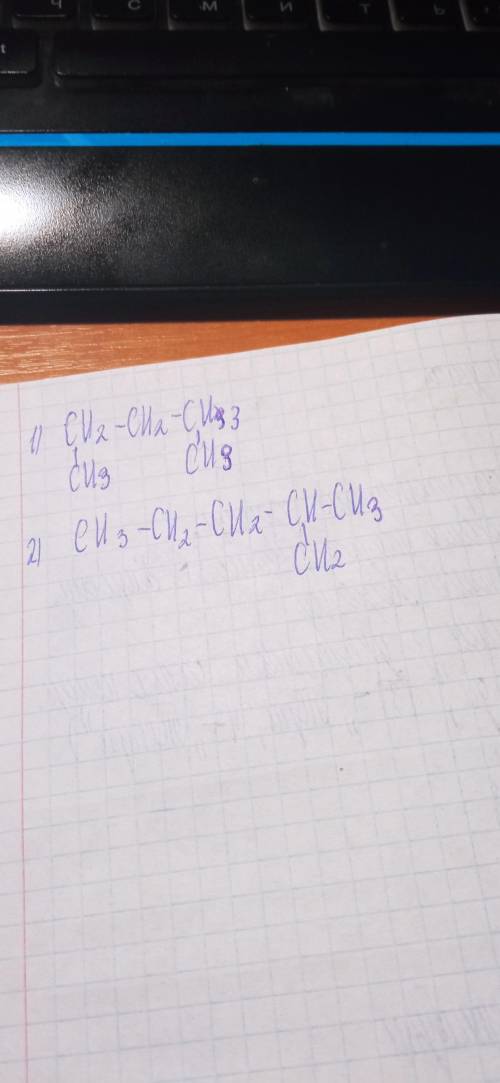 ч с м и т ь
t
1) CH2-CH2-CH33
CH3 CH3
2) CH3-CH2-CH2-CH-CH3
CH2